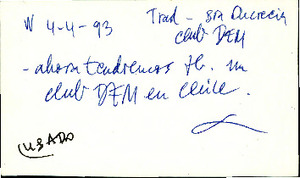 W 4-4-93
Trad - gra Lucrecia
club DFM
- ahora tendremos tb. un
club DFM en Chile.
USADO